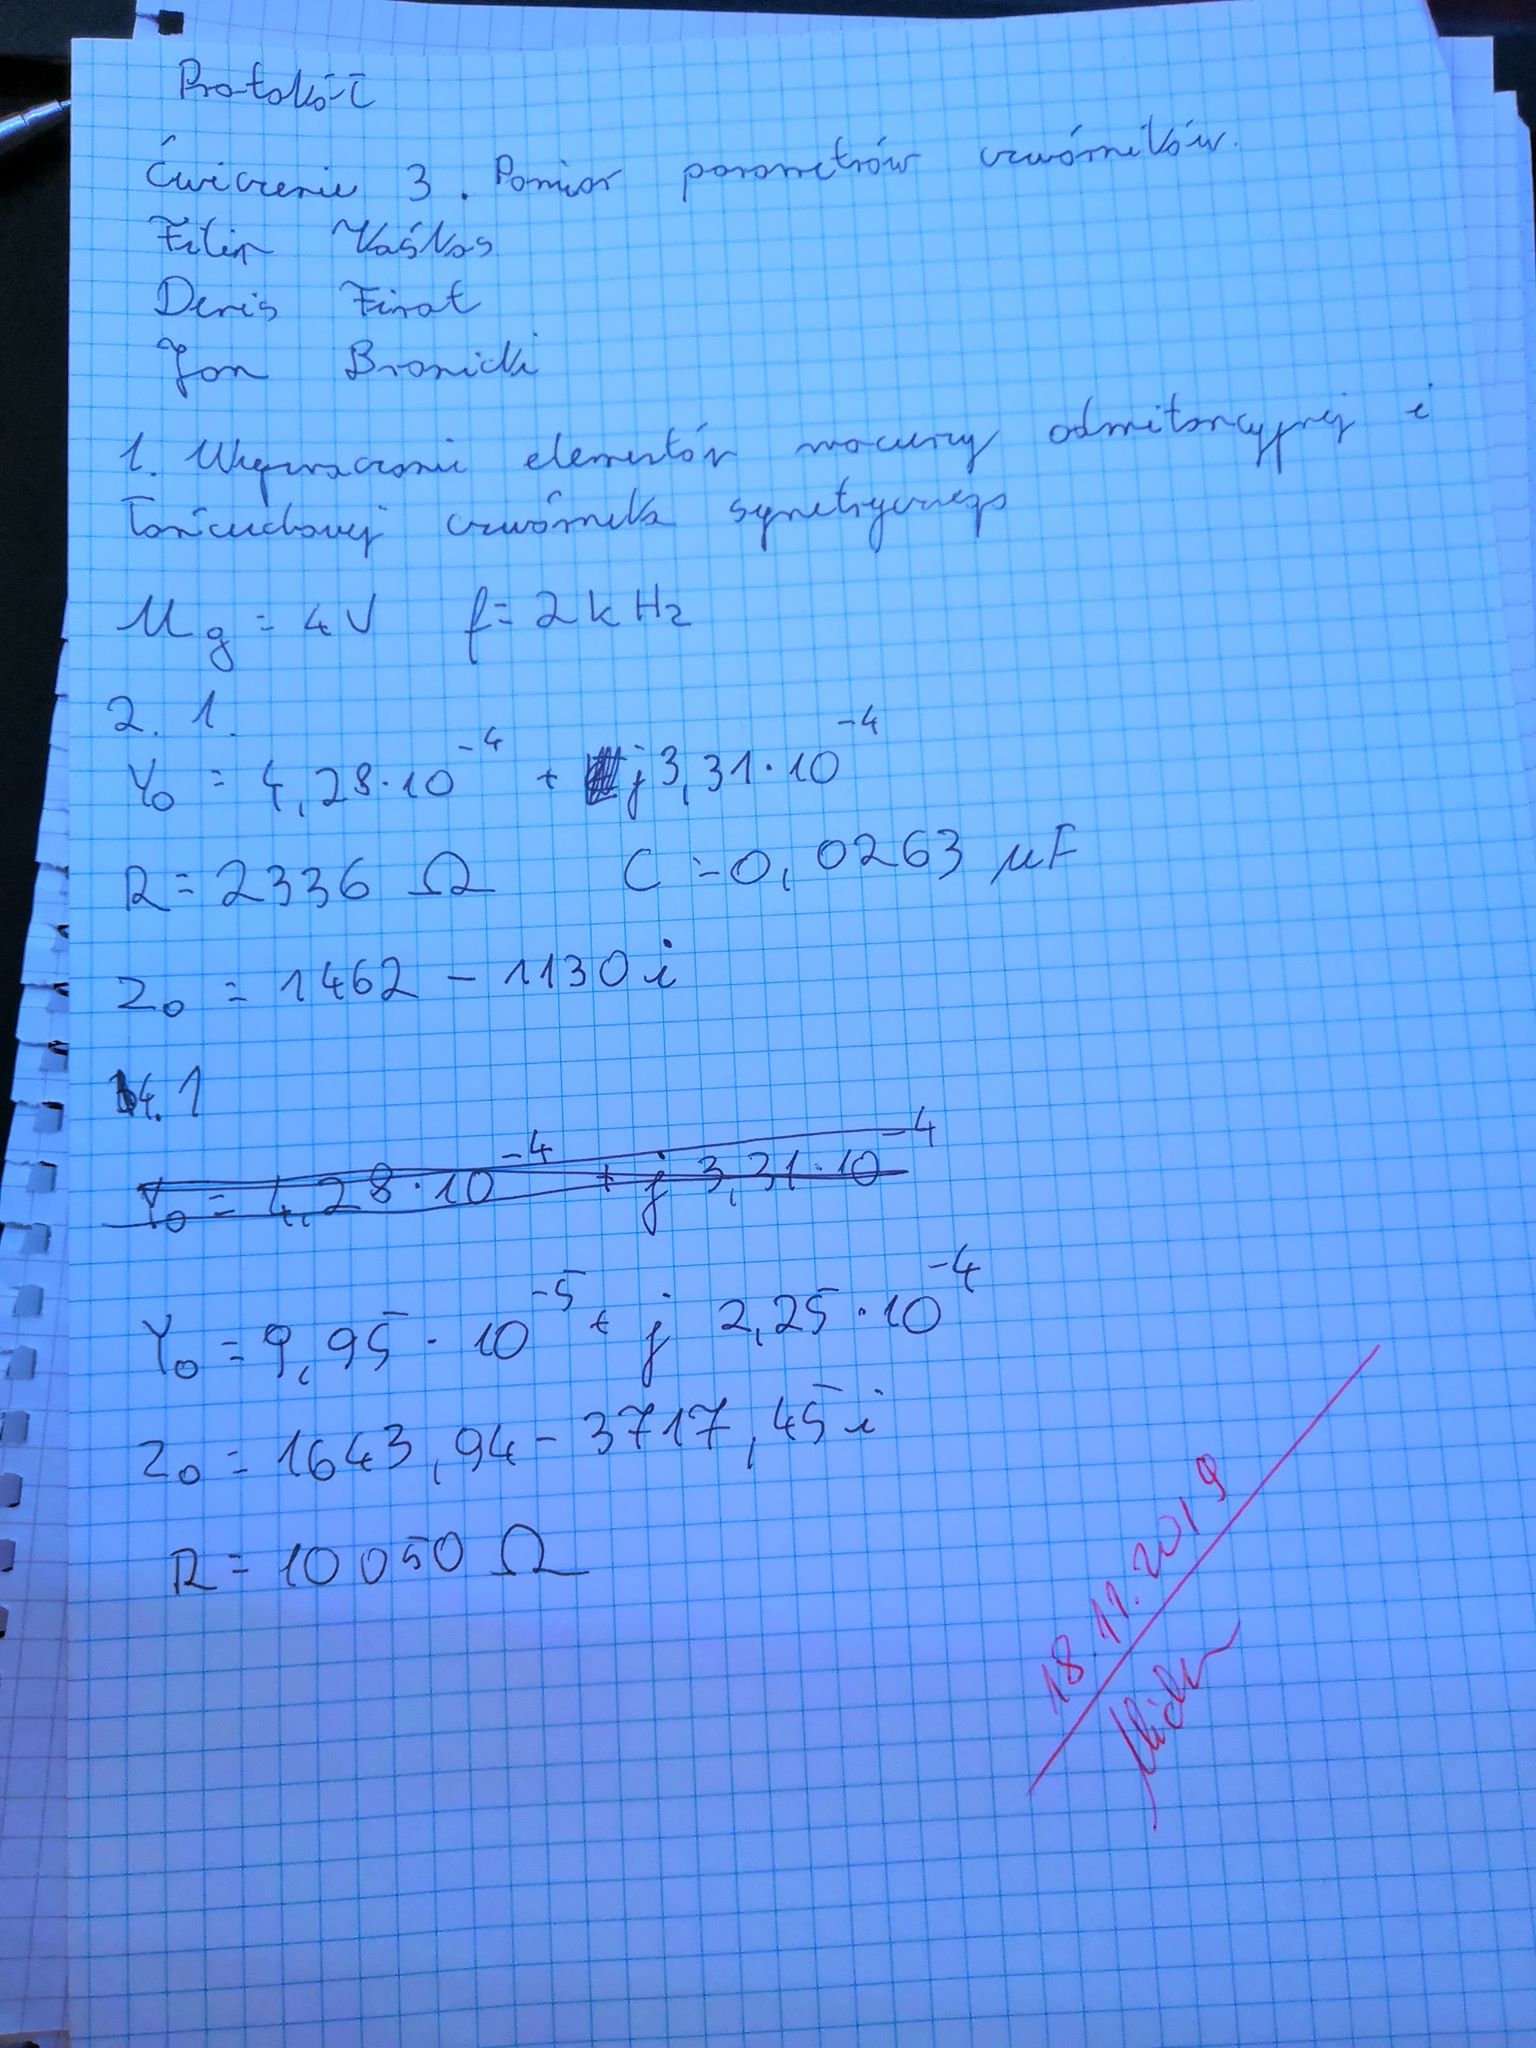 Protokół
Ćwiczenie 3. Pomiar parametrów czwórników.
Filip Kaśkos
Denis Firat
Jan Branicki
1. Wyznaczanie elementów macierzy admitancyjnej i
łańcuchowej czwórnika symetrycznego
Ug = 4V f = 2 kHz
2. 1.
Y₀ = 4,28·10⁻⁴ + j3,31·10⁻⁴
R = 2336 Ω C = 0,0263 μF
Z₀ = 1462 - 1130i
4.1
Y₀ = 4,28·10⁻⁴ + j 3,31·10⁻⁴
Y₀ = 9,95·10⁻⁵ + j 2,25·10⁻⁴
Z₀ = 1643,94 - 3717,45i
R = 10050 Ω
18.11.2019